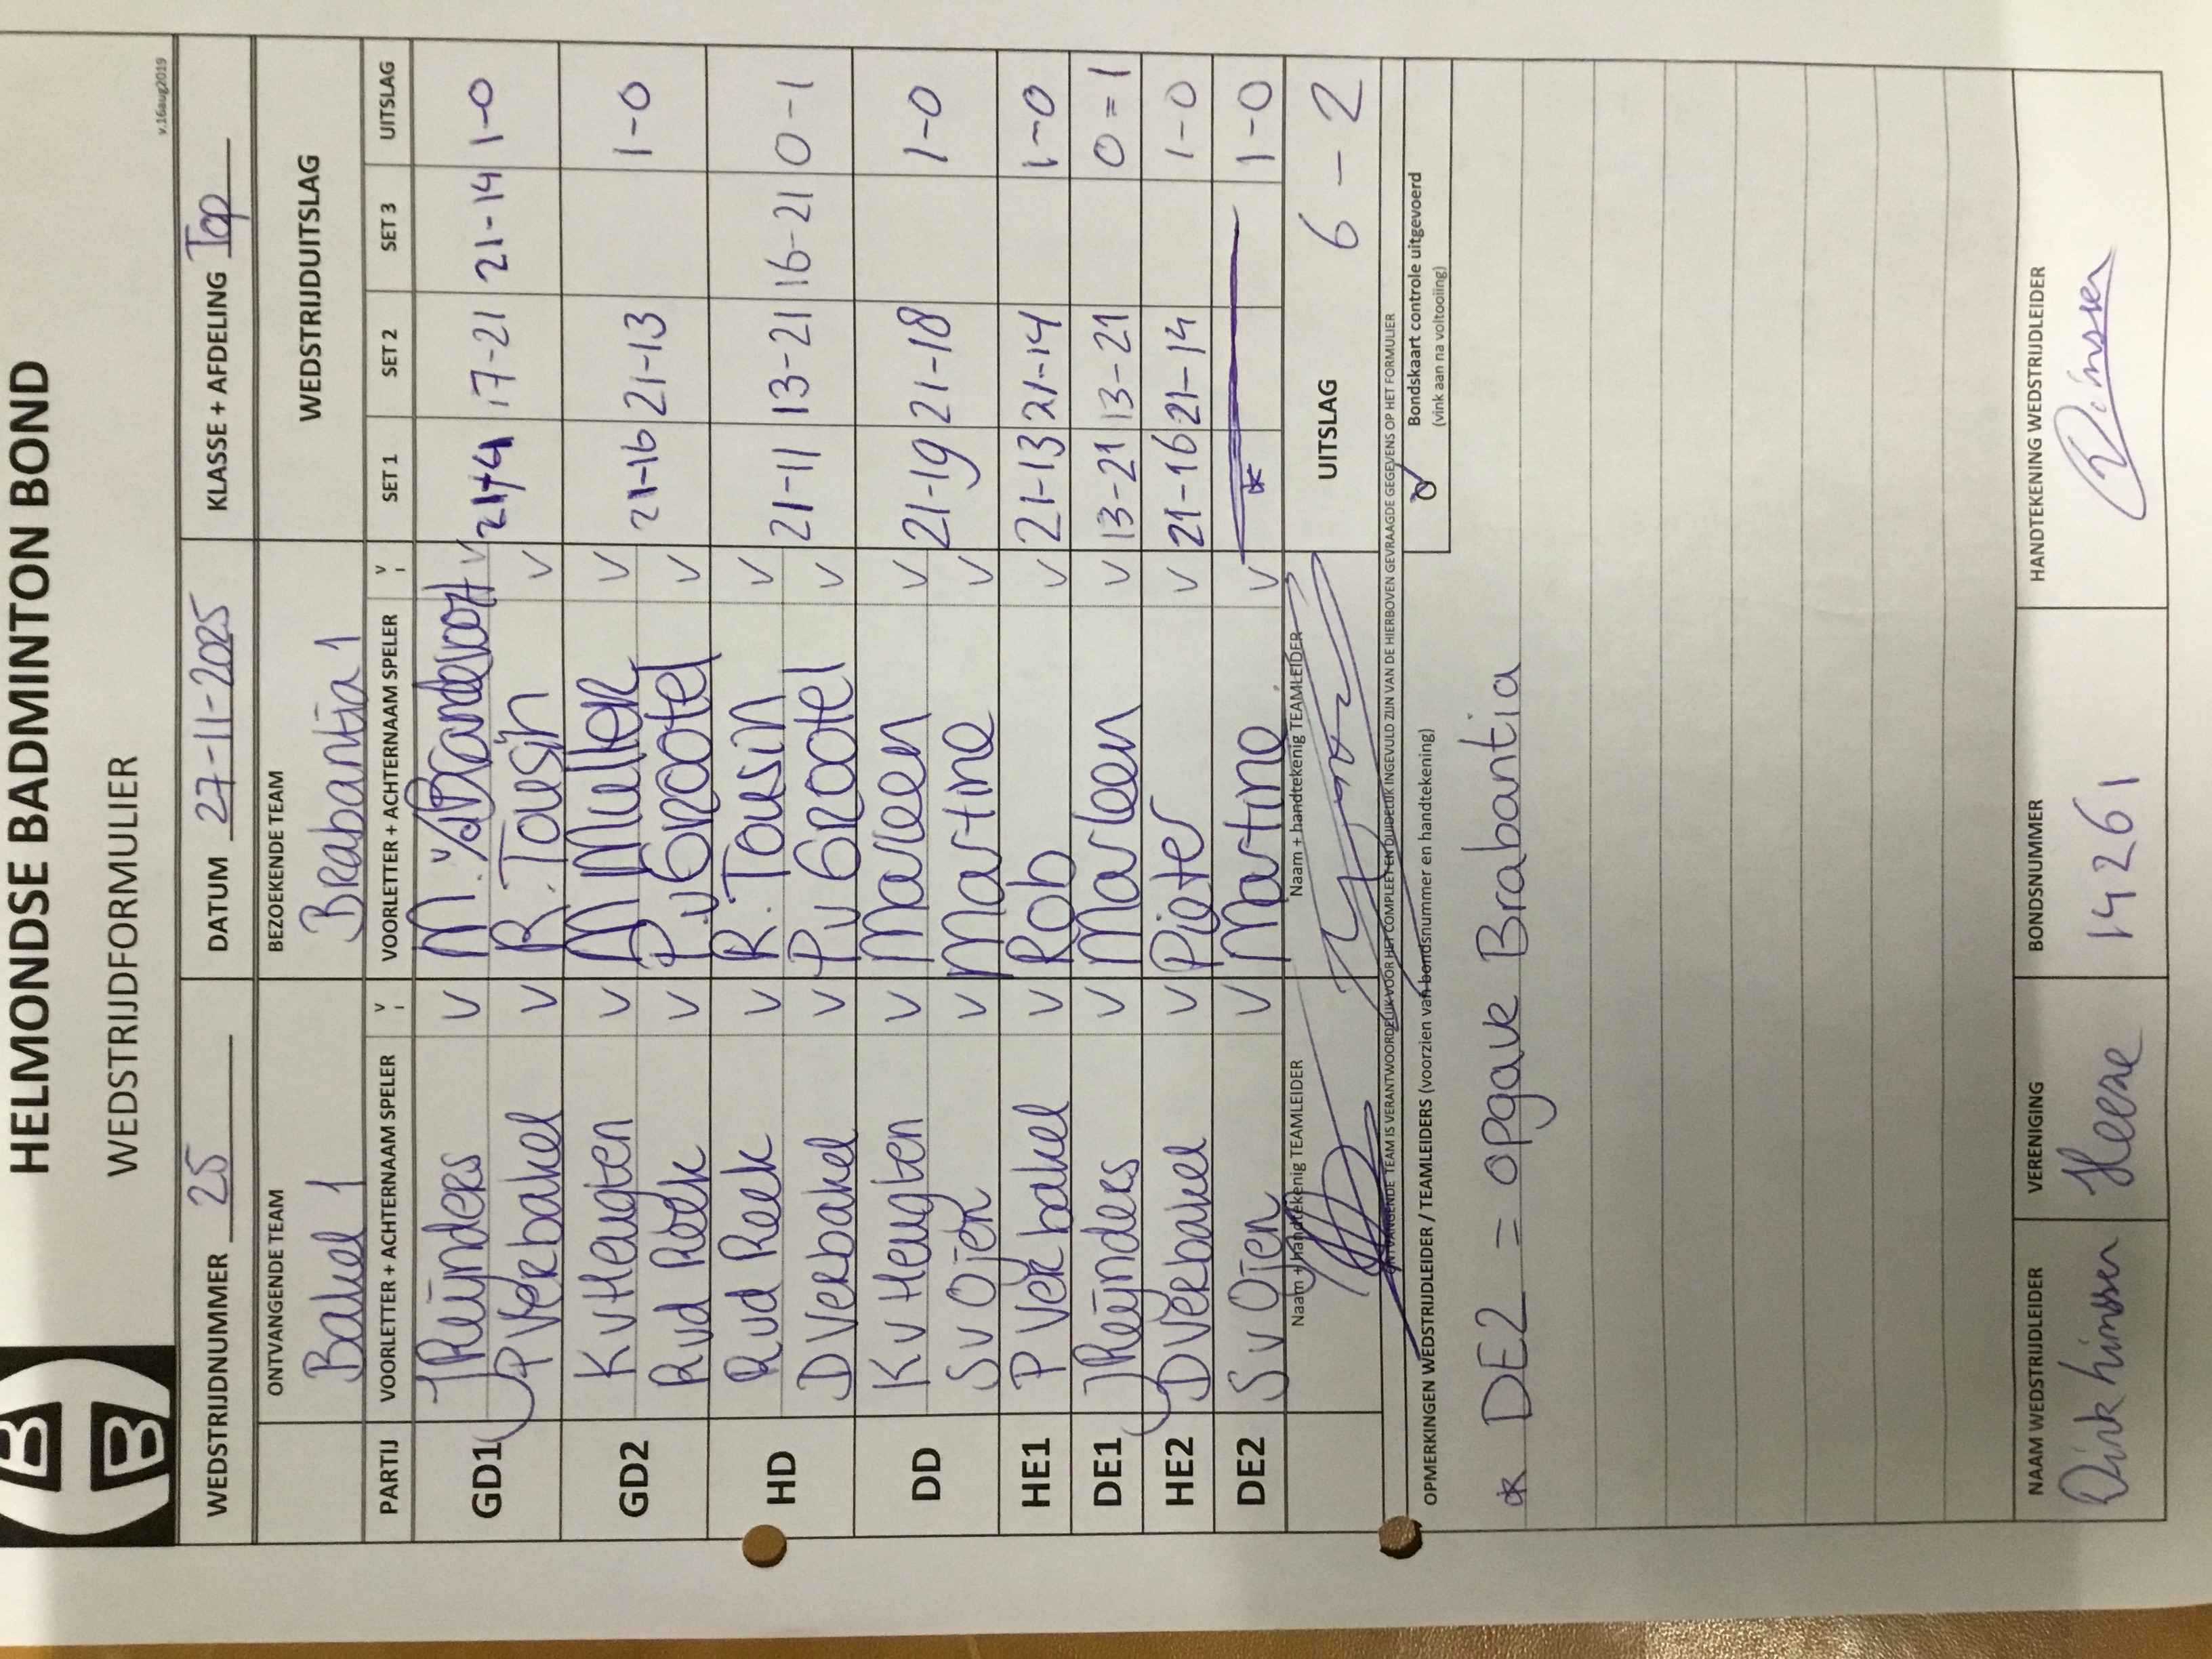 HELMONDSE BADMINTON BOND
WEDSTRIJDFORMULIER
v.16aug2019
WEDSTRIJDNUMMER 25 DATUM 27-11-2025 KLASSE + AFDELING Top
ONTVANGENDE TEAM BEZOEKENDE TEAM WEDSTRIJDUITSLAG
Bakel 1 Brabantia 1
PARTIJ VOORLETTER + ACHTERNAAM SPELER V VOORLETTER + ACHTERNAAM SPELER V SET 1 SET 2 SET 3 UITSLAG
GD1 J Reijnders V M. V 17-21 21-14 1-0
P Verbakel V R. Tousin V
GD2 K v Heugten V A Muller V 21-16 21-13 1-0
R vd Reek V P. v Grootel V
HD R vd Reek V R. Tousin V 21-11 13-21 16-21 0-1
D Verbakel V P v Grootel V
DD K v Heugten V Marleen V 21-19 21-18 1-0
S v Ojen V Martine V
HE1 P Verbakel V Rob V 21-13 21-14 1-0
DE1 J Reijnders V Marleen V 13-21 13-21 0=1
HE2 D Verbakel V Pieter V 21-16 21-14 1-0
DE2 S v Ojen V Martine V * 1-0
Naam + handtekenig TEAMLEIDER Naam + handtekenig TEAMLEIDER UITSLAG 6 - 2
ONTVANGENDE TEAM IS VERANTWOORDELIJK VOOR HET COMPLEET EN DUIDELIJK INGEVULD ZIJN VAN DE HIERBOVEN GEVRAAGDE GEGEVENS OP HET FORMULIER
OPMERKINGEN WEDSTRIJDLEIDER / TEAMLEIDERS (voorzien van bondsnummer en handtekening) Bondskaart controle uitgevoerd
(vink aan na voltooiing)
* DE2 = opgave Brabantia
NAAM WEDSTRIJDLEIDER VERENIGING BONDSNUMMER HANDTEKENING WEDSTRIJDLEIDER
Dirk 14261